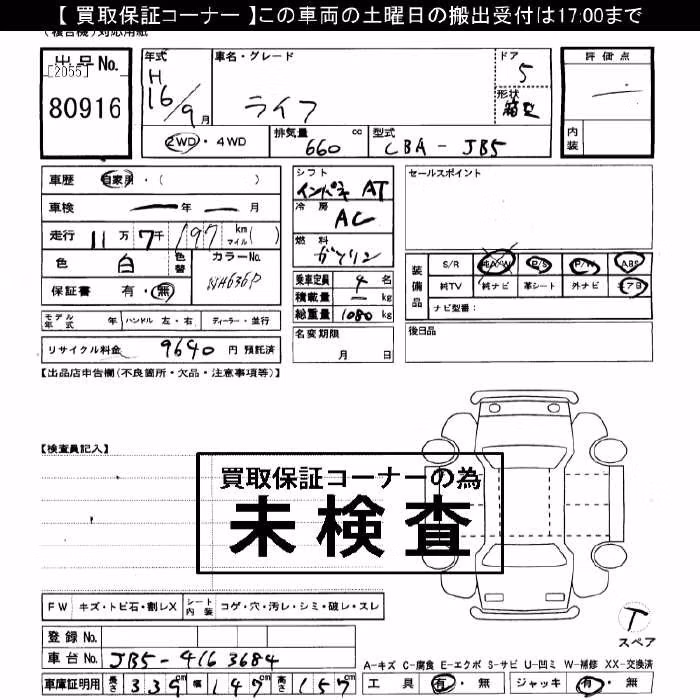 【 買取保証コーナー 】この車両の土曜日の搬出受付は17:00まで
(複合機)対応用紙
出品No.
[2055]
80916
年式
H
16/9月
車名・グレード
ライフ
ドア
5
形状
箱型
評価点
内装
2WD ・ 4WD
排気量
660 cc
型式
CBA - JB5
車歴 自家用・( )
車検 ー年 ー月
走行 11万 7千 197 km マイル( )
色 白 色替
カラーNo.
NH636P
保証書 有・無
シフト
インパネ AT
冷房
AC
燃料
ガソリン
乗車定員 4 名
積載量 ー kg
総重量 1080 kg
セールスポイント
装備品
S/R 純AW P/S P/W ABS
純TV 純ナビ 革シート 外ナビ エアB
ナビ型番:
モデル年式 年 ハンドル 左・右 ディーラー・並行
リサイクル料金 9640 円 預託済
名変期限
月 日
後日品
【出品店申告欄(不良箇所・欠品・注意事項等)】
【検査員記入】
買取保証コーナーの為
未検査
FW キズ・トビ石・割レX
シート内装 コゲ・穴・汚レ・シミ・破レ・スレ
登録No.
車台No. JB5-4163684
車庫証明用 長さ 339cm 幅 147cm 高さ 157cm
T
スペア
A-キズ C-腐食 E-エクボ S-サビ U-凹ミ W-補修 XX-交換済
工具 有・無 ジャッキ 有・無